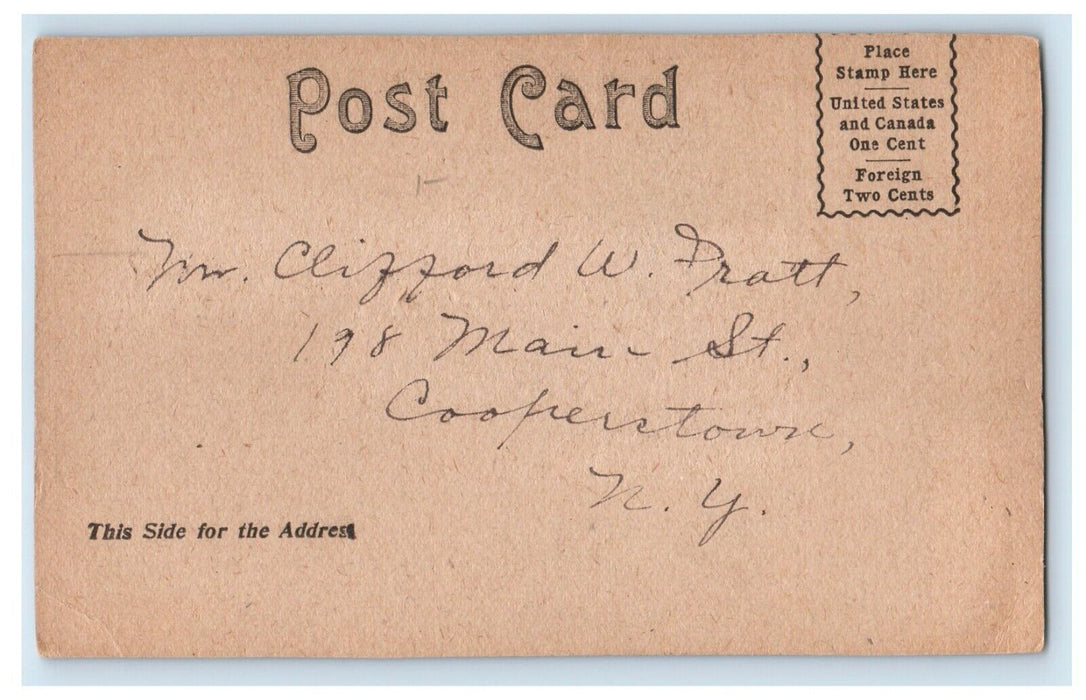 Post Card
Place
Stamp Here
United States
and Canada
One Cent
Foreign
Two Cents
Mr. Clifford W. Pratt,
198 Main St.,
Cooperstown,
N. Y.
This Side for the Address